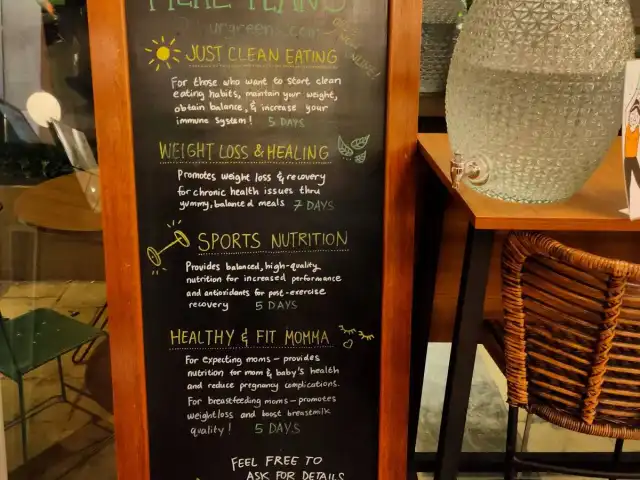 MEAL PLANS
JUST CLEAN EATING
For those who want to start clean
eating habits, maintain your weight,
obtain balance, & increase your
immune system! 5 DAYS
WEIGHT LOSS & HEALING
Promotes weight loss & recovery
for chronic health issues thru
yummy, balanced meals 7 DAYS
SPORTS NUTRITION
Provides balanced, high-quality
nutrition for increased performance
and antioxidants for post-exercise
recovery 5 DAYS
HEALTHY & FIT MOMMA
For expecting moms - provides
nutrition for mom & baby's health
and reduce pregnancy complications.
For breastfeeding moms - promotes
weightloss and boost breastmilk
quality! 5 DAYS
FEEL FREE TO
ASK FOR DETAILS